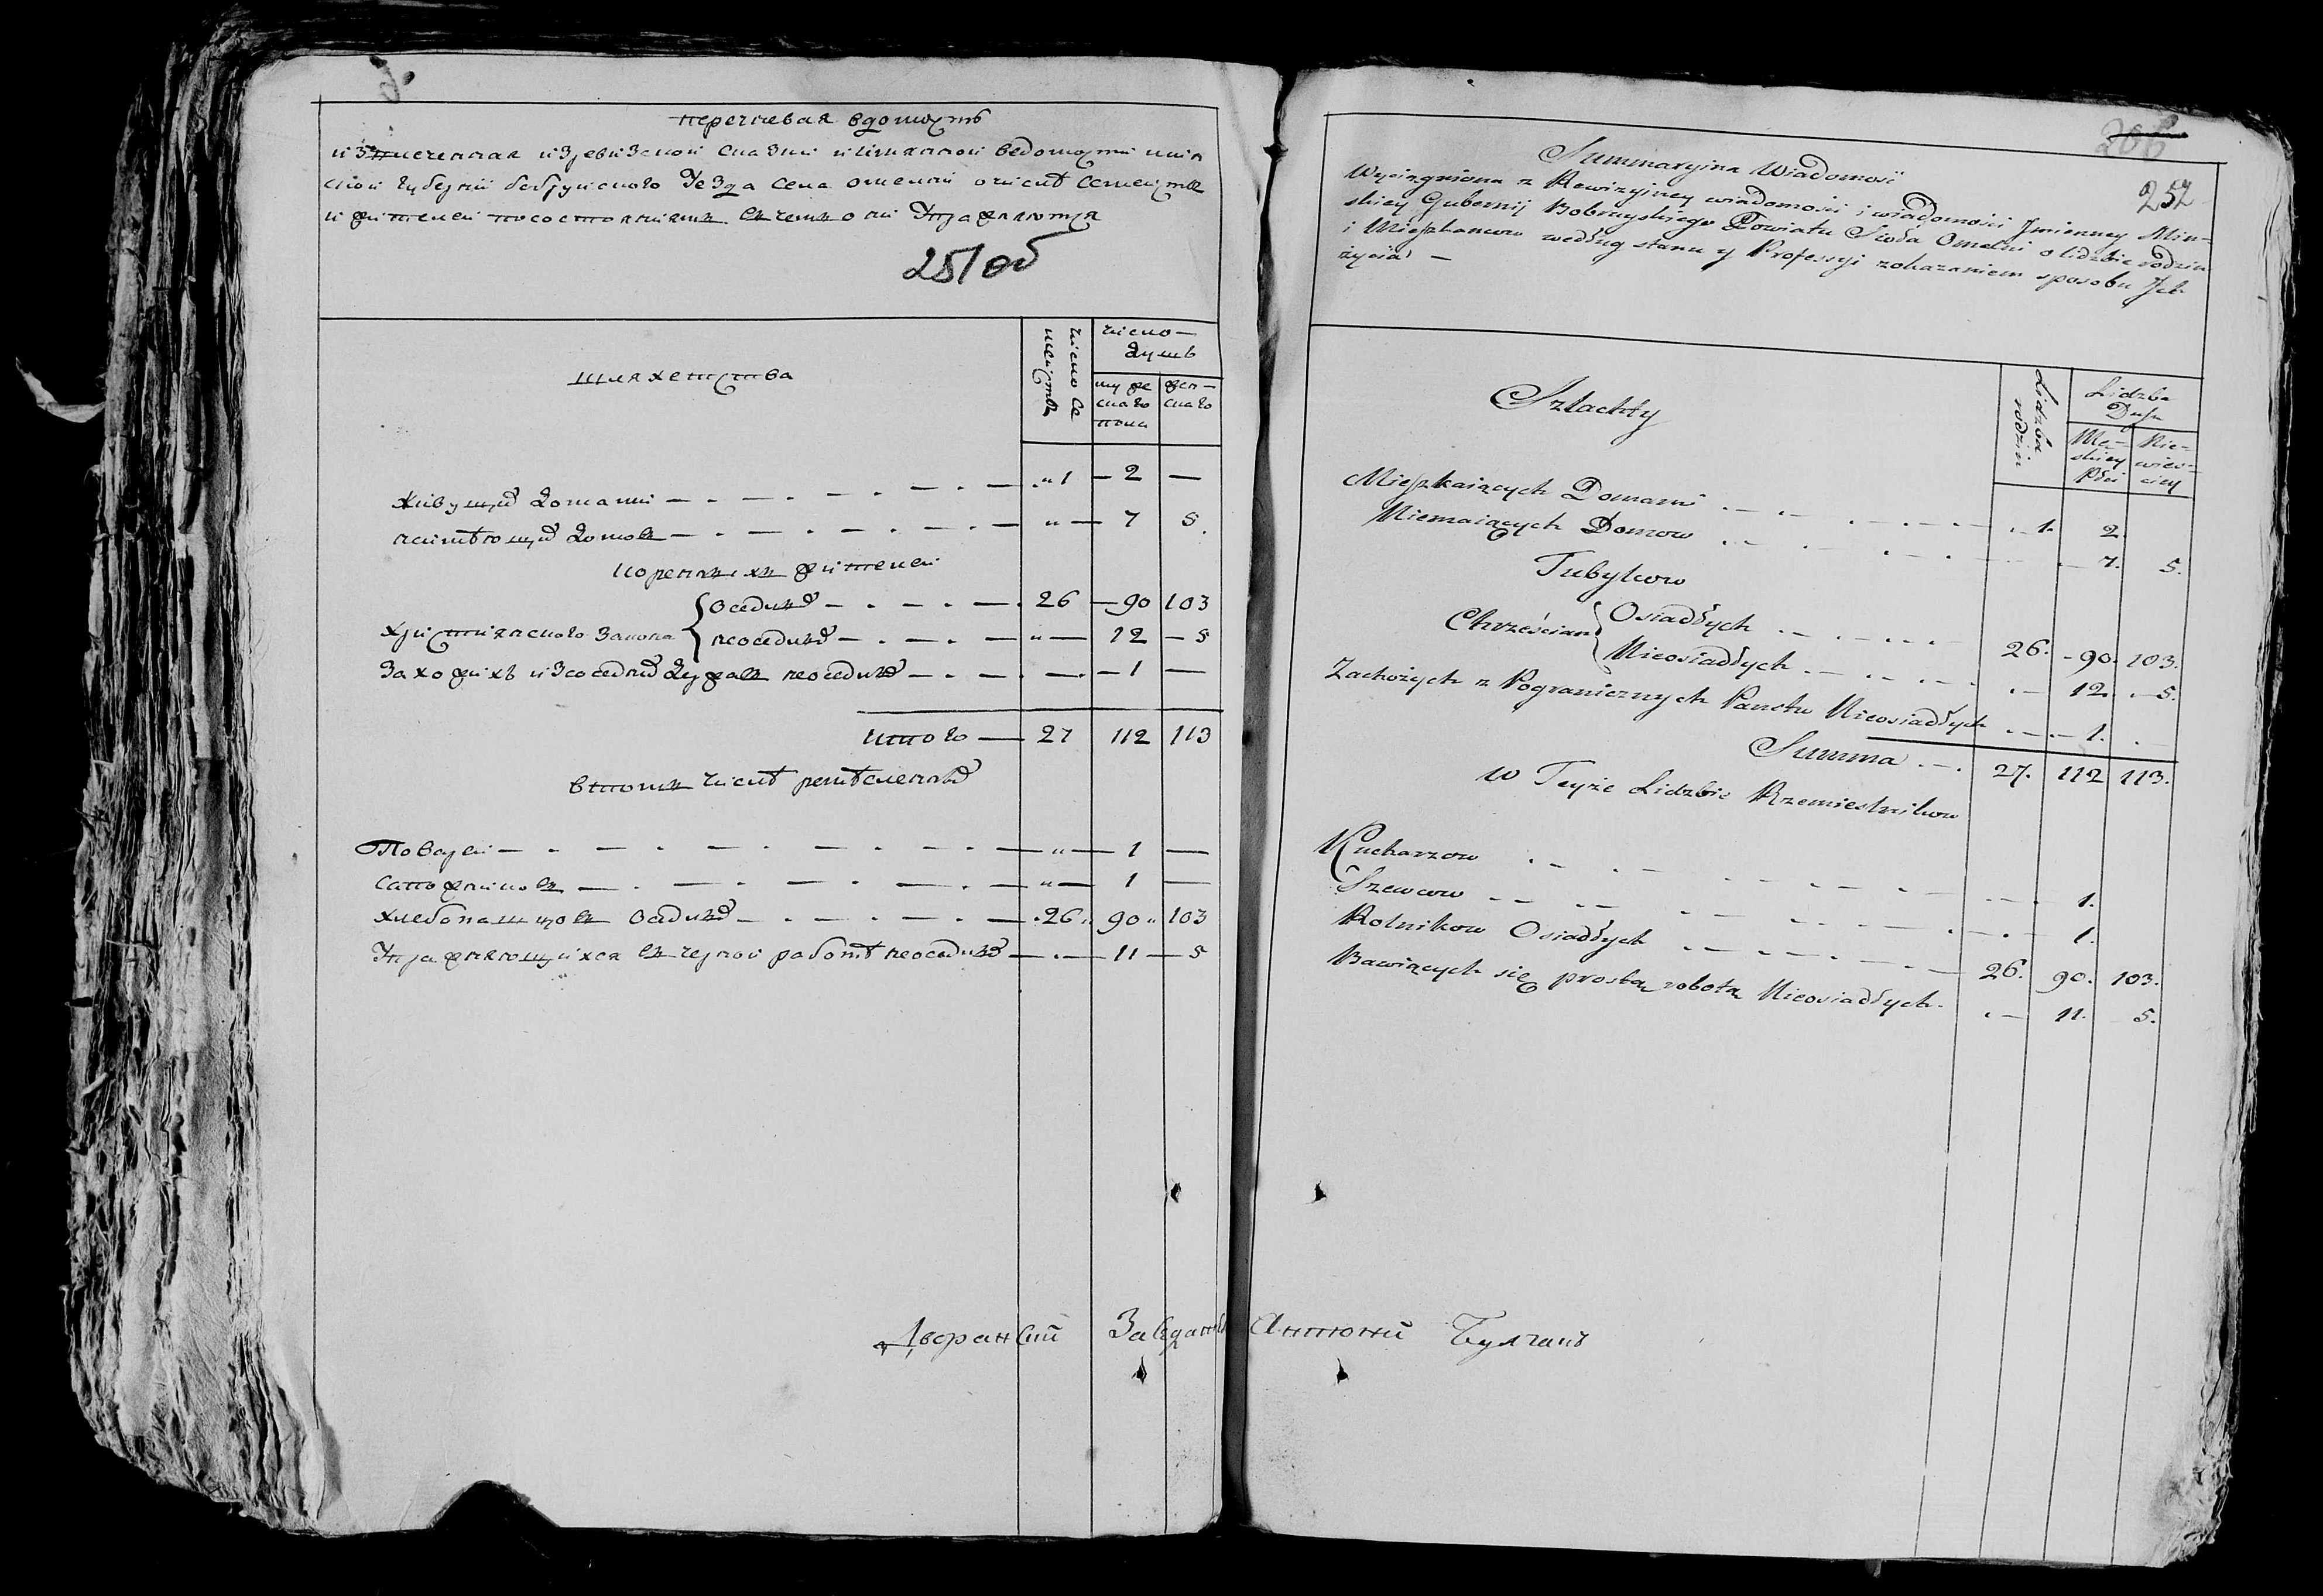 перечневая вдомость
изчисленная изревизской сказки иимянной ведомости мин
ской губернии бобруйского уезда села омелни очисле семейства
и жителей посостояниям
251 об
шляхетства
число се
мейства
число
душъ
муже
ска го
пола
жен
ска го
живущих домами — " 1 — 2 —
неимеющих домов — " — 7 5.
коренных жителей
христианского закона
оседлых — 26 — 90 103
неоседлых — " — 12 — 5
захожихъ изсоседних держав неоседлых — — 1 —
итого — 27 112 113
втом числе ремесленных
Поваров — " — 1 —
сапожников — " — 1 —
хлебопашцов оседлых — 26 " 90 " 103
упражняющихся в черной работе неоседлых — 11 — 5
266
252
Summaryjna Wiadomość
Wyciągniona z Rewizyjney wiadomości i wiadomości Jmienney Min-
skiey Gubernij Bobruyskiego Powiatu Sioła Omelni o lidzbie rodzin
i Mieszkancow według stanu y Professyi zokazaniem sposobu Jch
życia —
Szlachty
Lidzba
rodzin
Lidzba
Dusz
Mę-
skiey
Płci
Nie-
wies-
ciey
Mieszkaiących Domami 1. 2.
Niemaiących Domow 7. 5.
Tubylcow
Chrześcian
Osiadłych 26. 90. 103.
Nieosiadłych 12. 5.
Zachożych z Pogranicznych Panstw Nieosiadłych 1.
Summa 27. 112 113.
w Teyże Lidzbie Rzemieslnikow
Kucharzow 1.
Szewcow 1.
Rolnikow Osiadłych 26. 90. 103.
Bawiących się prostą robotą Nieosiadłych 11. 5.
Дворанский Антоний Булгакъ